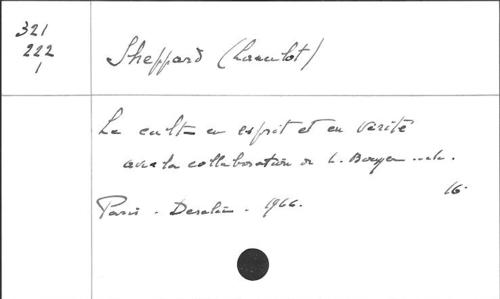 321
222
1
Sheppard (Lancelot)
Le culte en esprit et en vérité
avec la collaboration de L. Bouyer ... etc.
Paris - Desclée - 1966.
16°